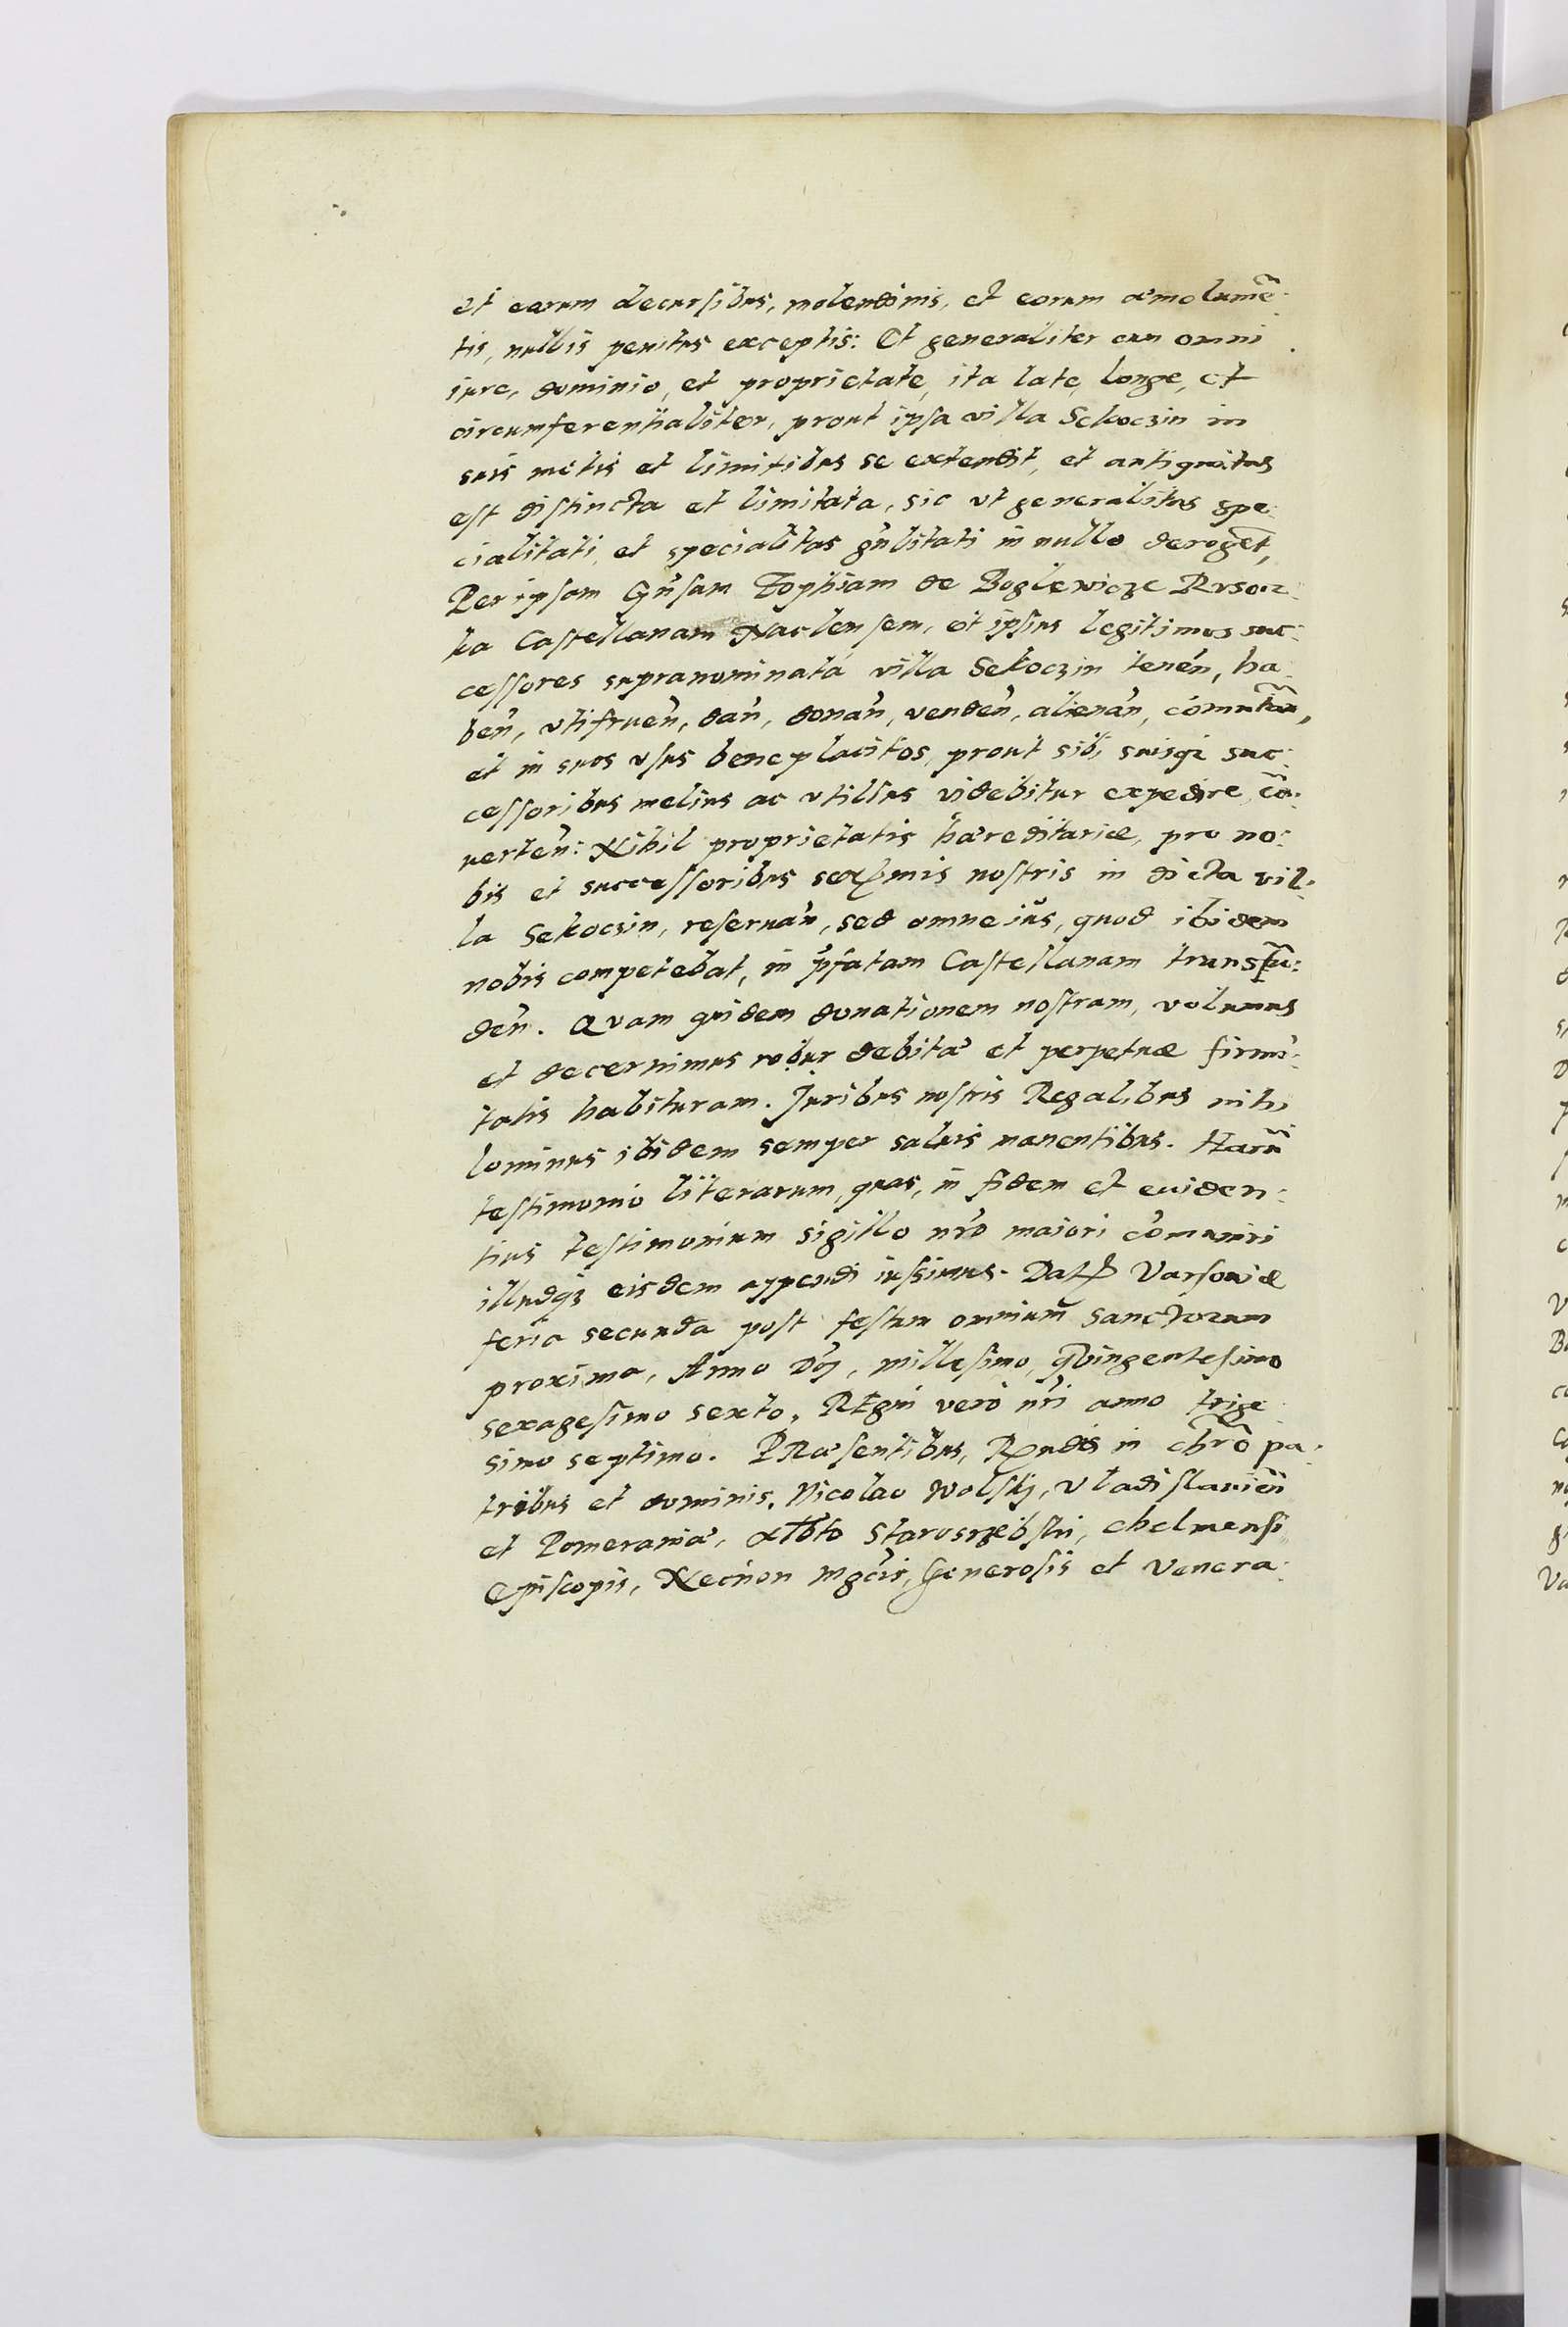 et earum decursibus, molendinis, et eorum æmolumẽ:
tis, nullis penitus exceptis: Et generaliter cum omni
iure, dominio, et proprietate, ita late, longe, et
circumferentialiter, prout ipsa villa Sekoczin in
suis metis et limitibus se extendit, et antiquitus
est distincta et limitata, sic vt generalitas spe:
cialitati, et specialitas gñlitati in nullo derogẽt,
Per ipsam Gñsam Zophiam de Boglewicze Rvsocz:
ka Castellanam Naclensem, et ipsius legitimos suc:
cessores supranominatá villa Sekoczin teneñ, ha:
beñ, vtifrueñ, dañ, donañ, vendeñ, alienañ, cõmutañ,
et in suos vsus beneplacitos, prout sibi suisqȝ suc:
cessoribus melius ac vtilius videbitur expedire, cõ:
uerteñ: Nihil proprietatis hæreditariæ, pro no:
bis et successoribus serꝭmis nostris in dicta vil:
la Sekoczin, reseruañ, sed omne iús, quod ibidem
nobis competebat, in p̃fatam Castellanam transfũ:
deñ. Qvam quidem donationem nostram, volumus
et decernimus robur debitæ et perpetuæ firmi:
tatis habituram. Juribus nostris Regalibus nihi
lominus ibidem semper saluis manentibus. Harũ
testimonio literarum, quas, in fidem et euiden:
tius testimonium sigillo nr̃o maiori cõmuniri
illudqȝ eisdem appendi iussimus. Datꝭ Varsouiæ
feria secunda post festum omnium Sanctorum
proxima, Anno Dñj, millesimo, qvingentesimo
sexagesimo sexto, REgni verò nr̃i anno trige
simo septimo. PRæsentibus, Rꝭndis in chr̃o pa:
tribus et dominis, Nicolao Wolskj, Vladislauieñ
et Pomeraniæ, Alb̃to Starosrzebski, Chelmensi
Episcopis, Necnon mgcis, Generosis et Venera: